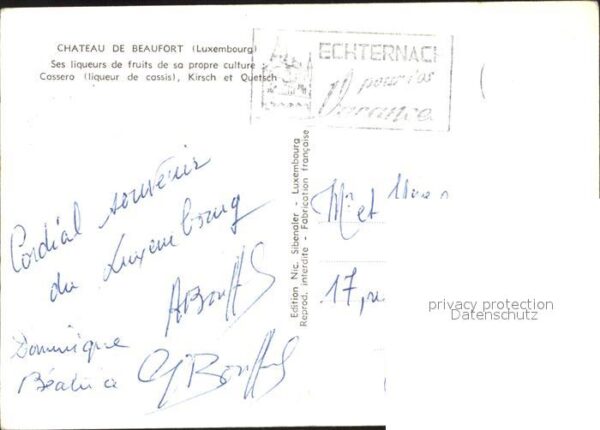 CHATEAU DE BEAUFORT (Luxembourg)
Ses liqueurs de fruits de sa propre culture :
Cassero (liqueur de cassis), Kirsch et Quetsch
ECHTERNAC
pour vos
Vacances
Cordial souvenir
du Luxembourg
Dominique
Béatrice
Edition Nic. Sibenaler - Luxembourg
Reprod. interdite - Fabrication française
Mr et Mme
17, r
privacy protection
Datenschutz